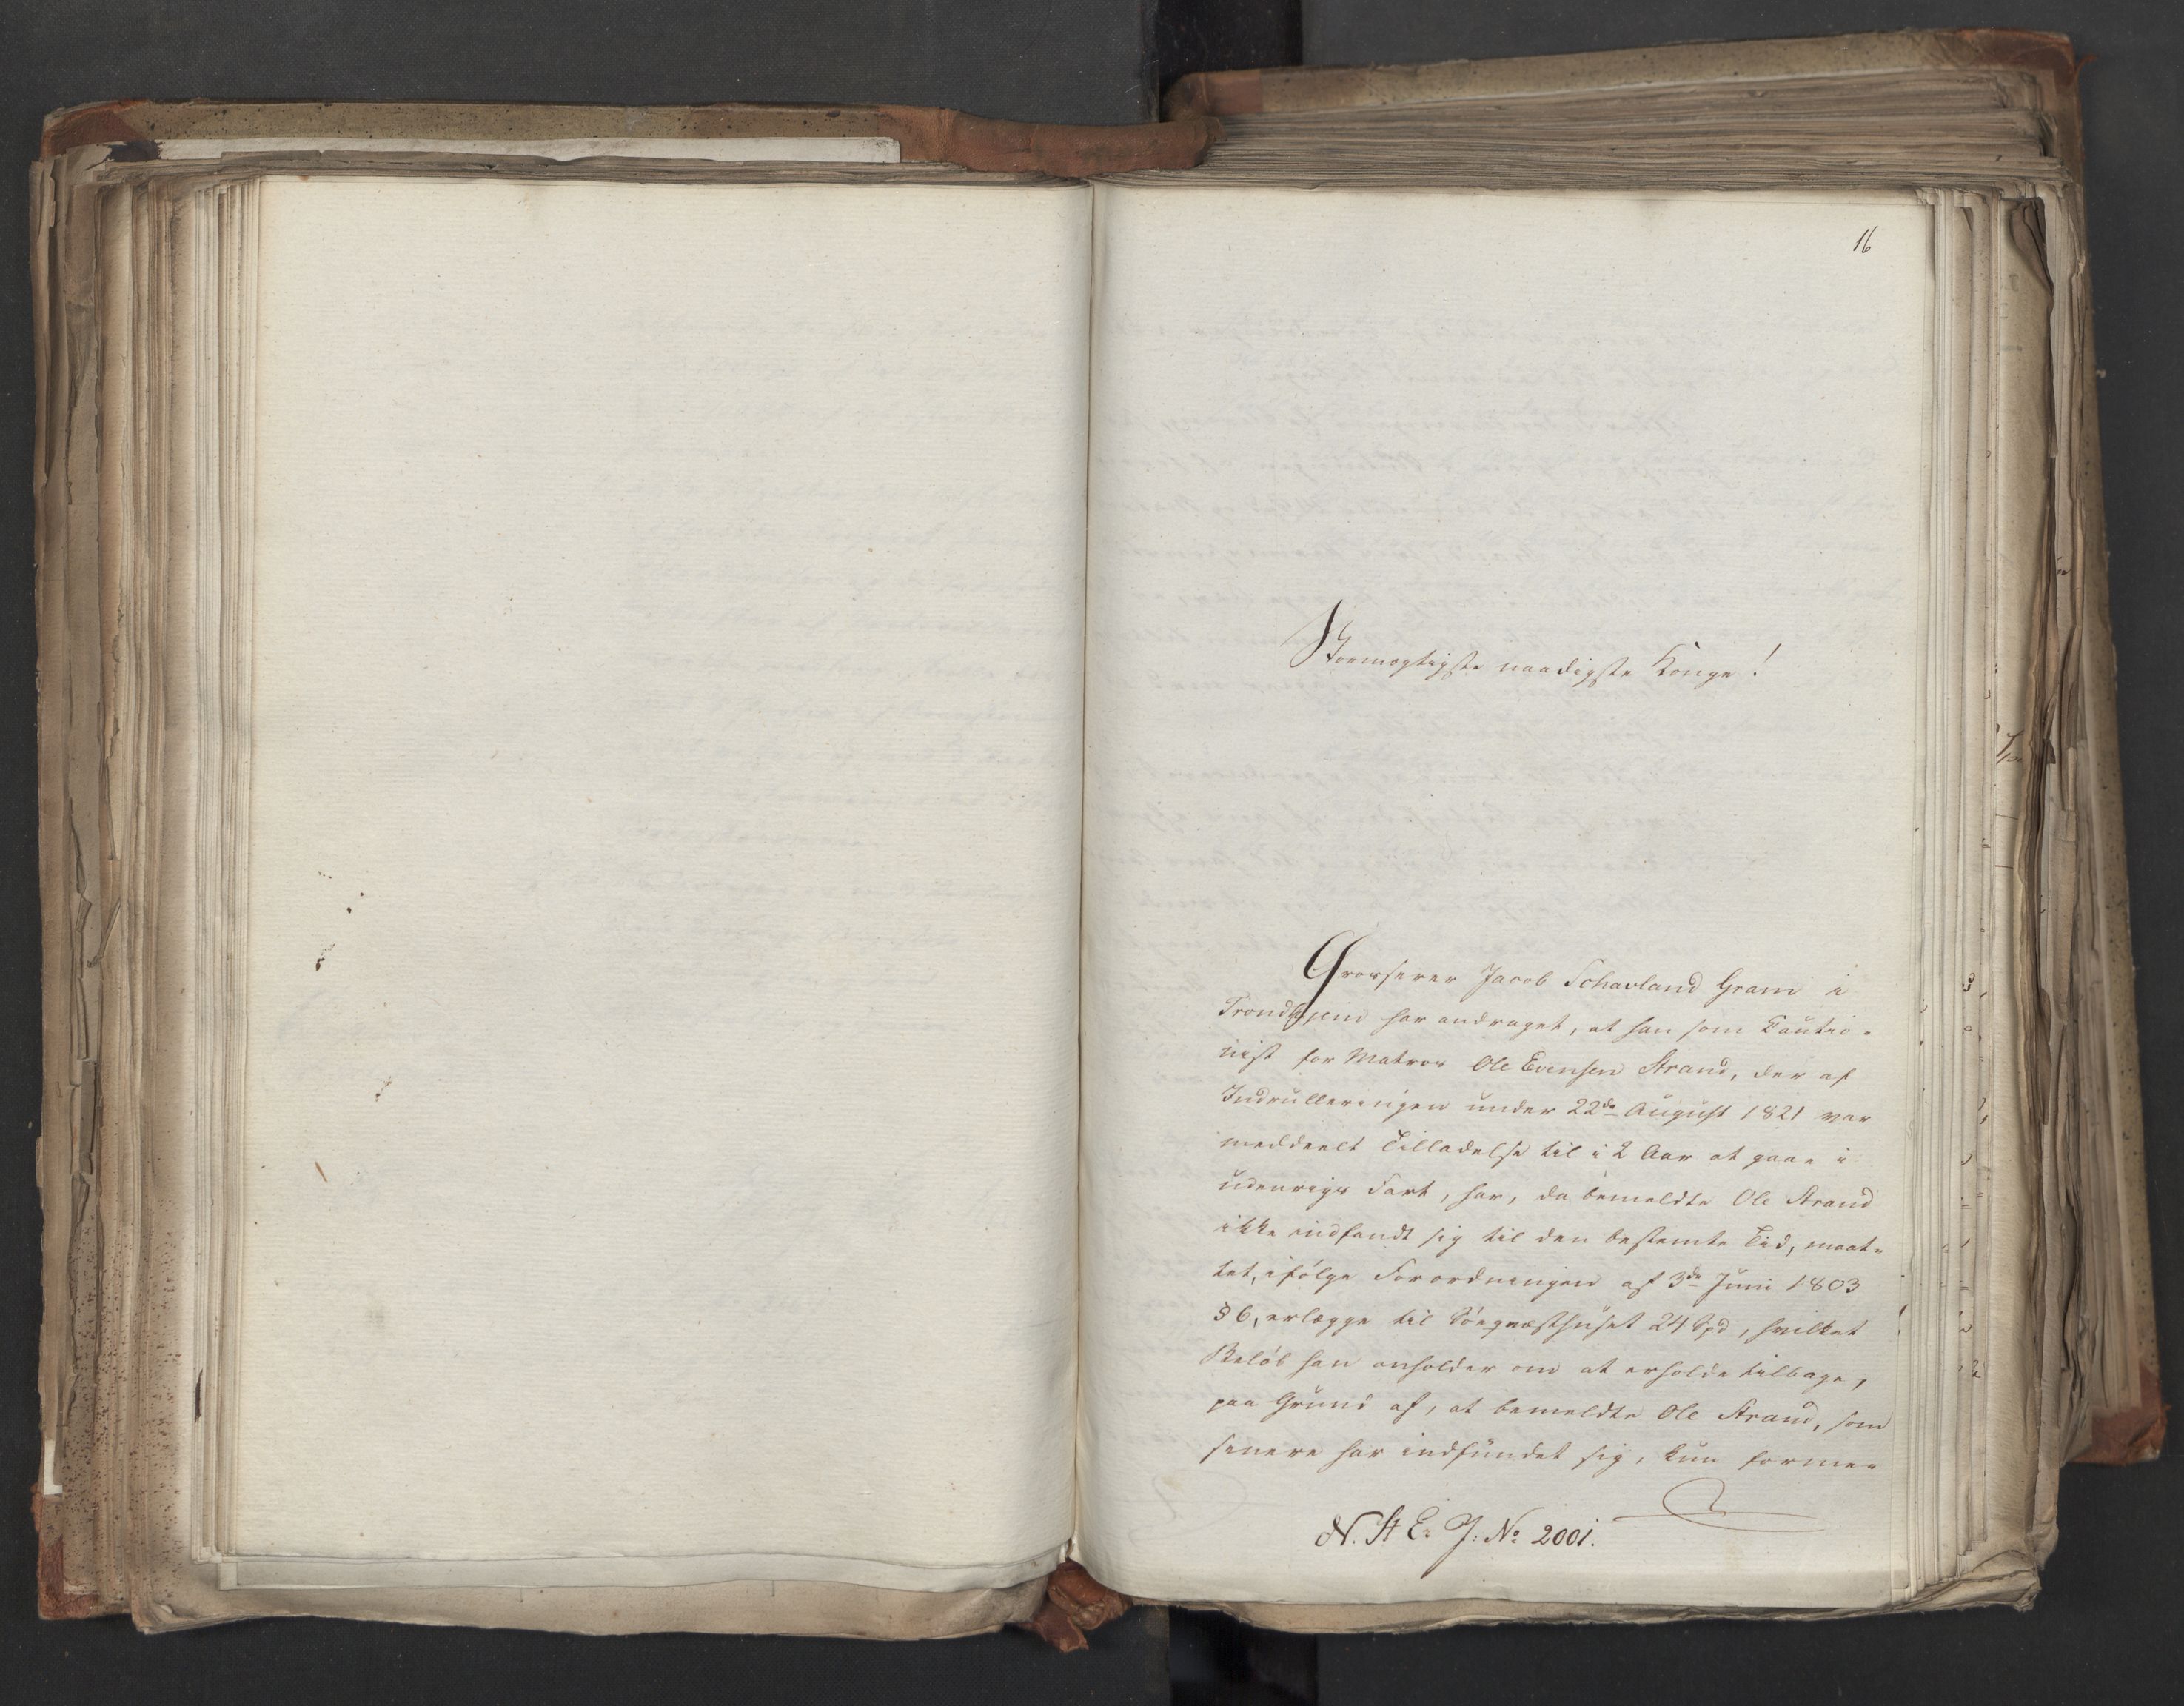 16
Stormægtigste naadigste Konge!
Grosserer Jacob Schavland Gram i
Trondhjem har andraget, at han som Cautio-
nist for Matros Ole Evensen Strand, der af
Indrulleringen under 22de August 1821 var
meddeelt Tilladelse til i 2 Aar at gaae i
udenrigs Fart, har, da bemeldte Ole Strand
ikke indfandt sig til den bestemte Tid, maat-
tet, ifølge Forordningen af 3de Juni 1803
§ 6, erlægge til Søeqvæsthuset 24 Spd, hvilket
Beløb han anholder om at erholde tilbage,
paa Grund af, at bemeldte Ole Strand, som
senere har indfundet sig, kun forme-
N. St E. J: No 2001.